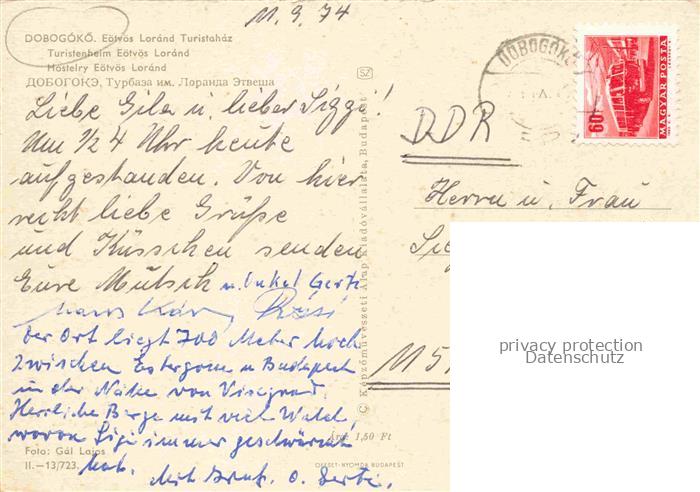 11.9.74
DOBOGÓKŐ. Eötvös Loránd Turistaház
Turistenheim Eötvös Loránd
Hostelry Eötvös Loránd
ДОБОГОКЭ, Турбаза им. Лоранда Этвеша
Liebe Gila u. lieber Sigge!
Um 1/2 4 Uhr heute
aufgestanden. Von hier
recht liebe Grüße
und Küsschen senden
Eure Mutsch u. Onkel Gerti
Der Ort liegt 700 Meter hoch
zwischen Estergom u Budapest
in der Nähe von Visegrad.
Herrliche Berge mit viel Wald,
wovon Sigi immer geschwärmt
hat.
Mit Gruß. O. Gerti.
Foto: Gál Lajos
II.-13/723.
Ára: 1,50 Ft
OFFSET-NYOMDA BUDAPEST
© Képzőművészeti Alap Kiadóvállalata, Budapest
SZ
DOBOGÓKŐ
60
MAGYAR POSTA
DDR
Herrn u. Frau
M 5
privacy protection
Datenschutz